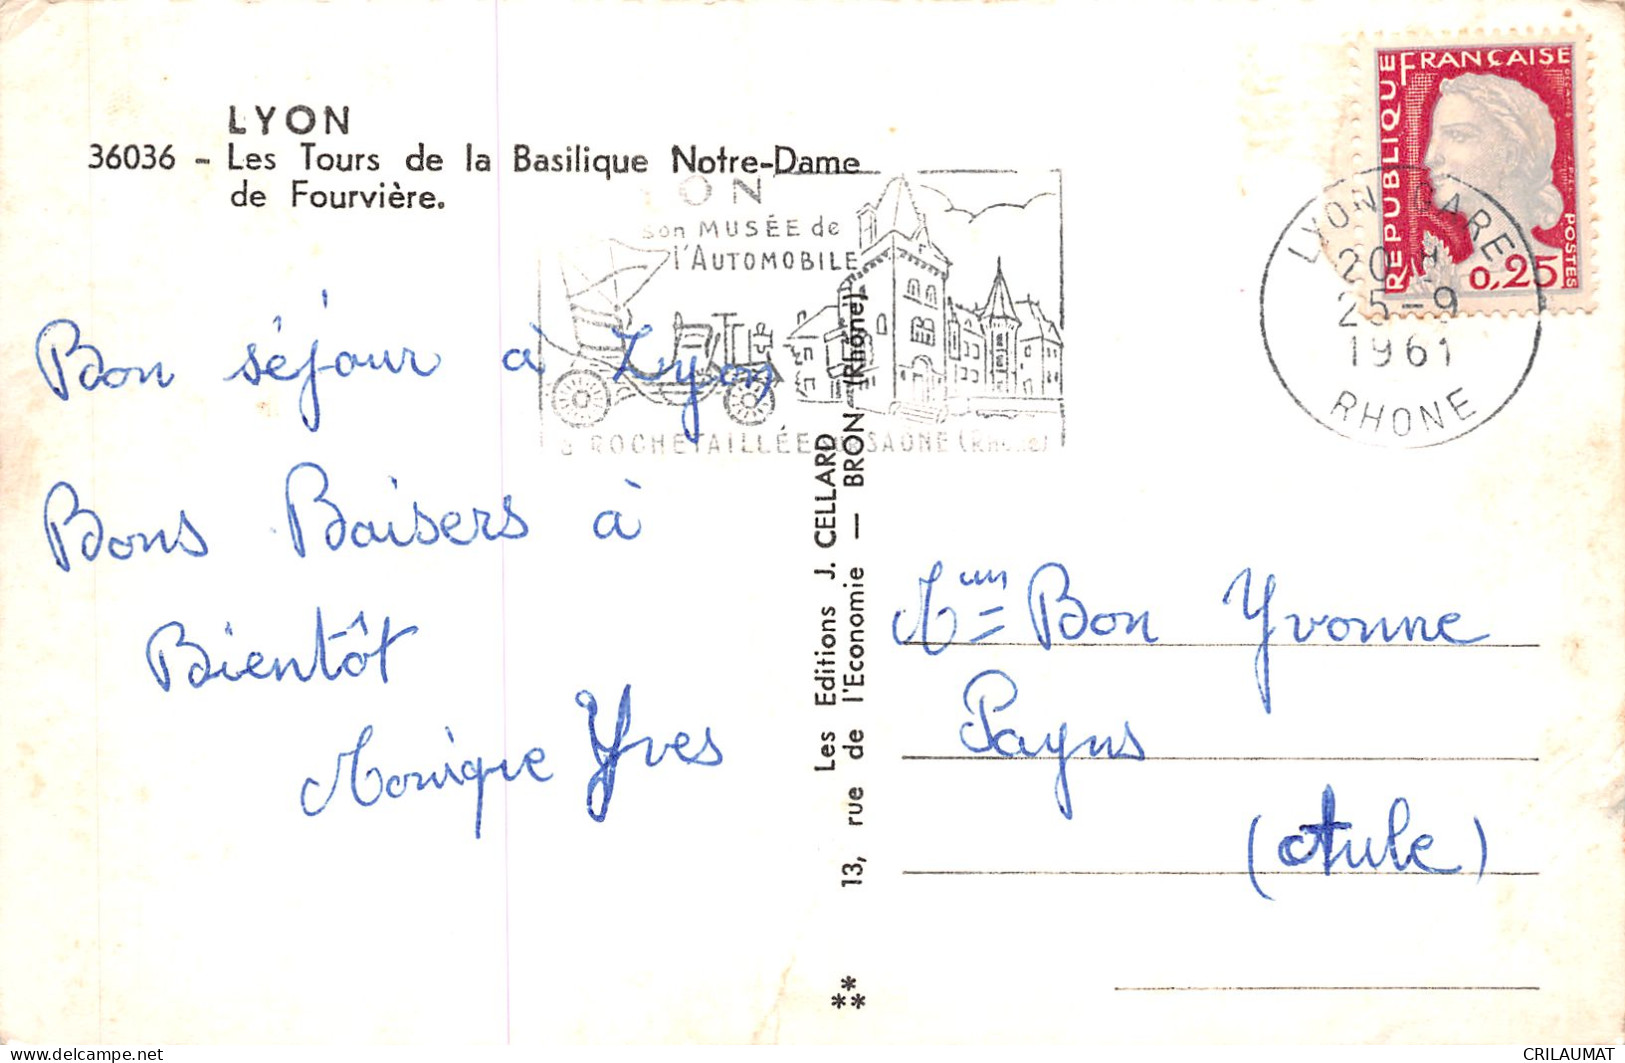 LYON
36036 - Les Tours de la Basilique Notre-Dame
de Fourvière.
YON
son MUSÉE de
l'AUTOMOBILE
à ROCHETAILLÉE SUR SAONE (Rhône)
RÉPUBLIQUE FRANÇAISE
0,25
POSTES
LYON GARE
20 H
25-9
1961
RHONE
Bon séjour à Lyon
Bons Baisers à
Bientôt
Monique Yves
Les Editions J. CELLARD
13, rue de l'Economie — BRON (Rhône)
Mme Bon Yvonne
Payns
(Aube)
CRILAUMAT
delcampe.net